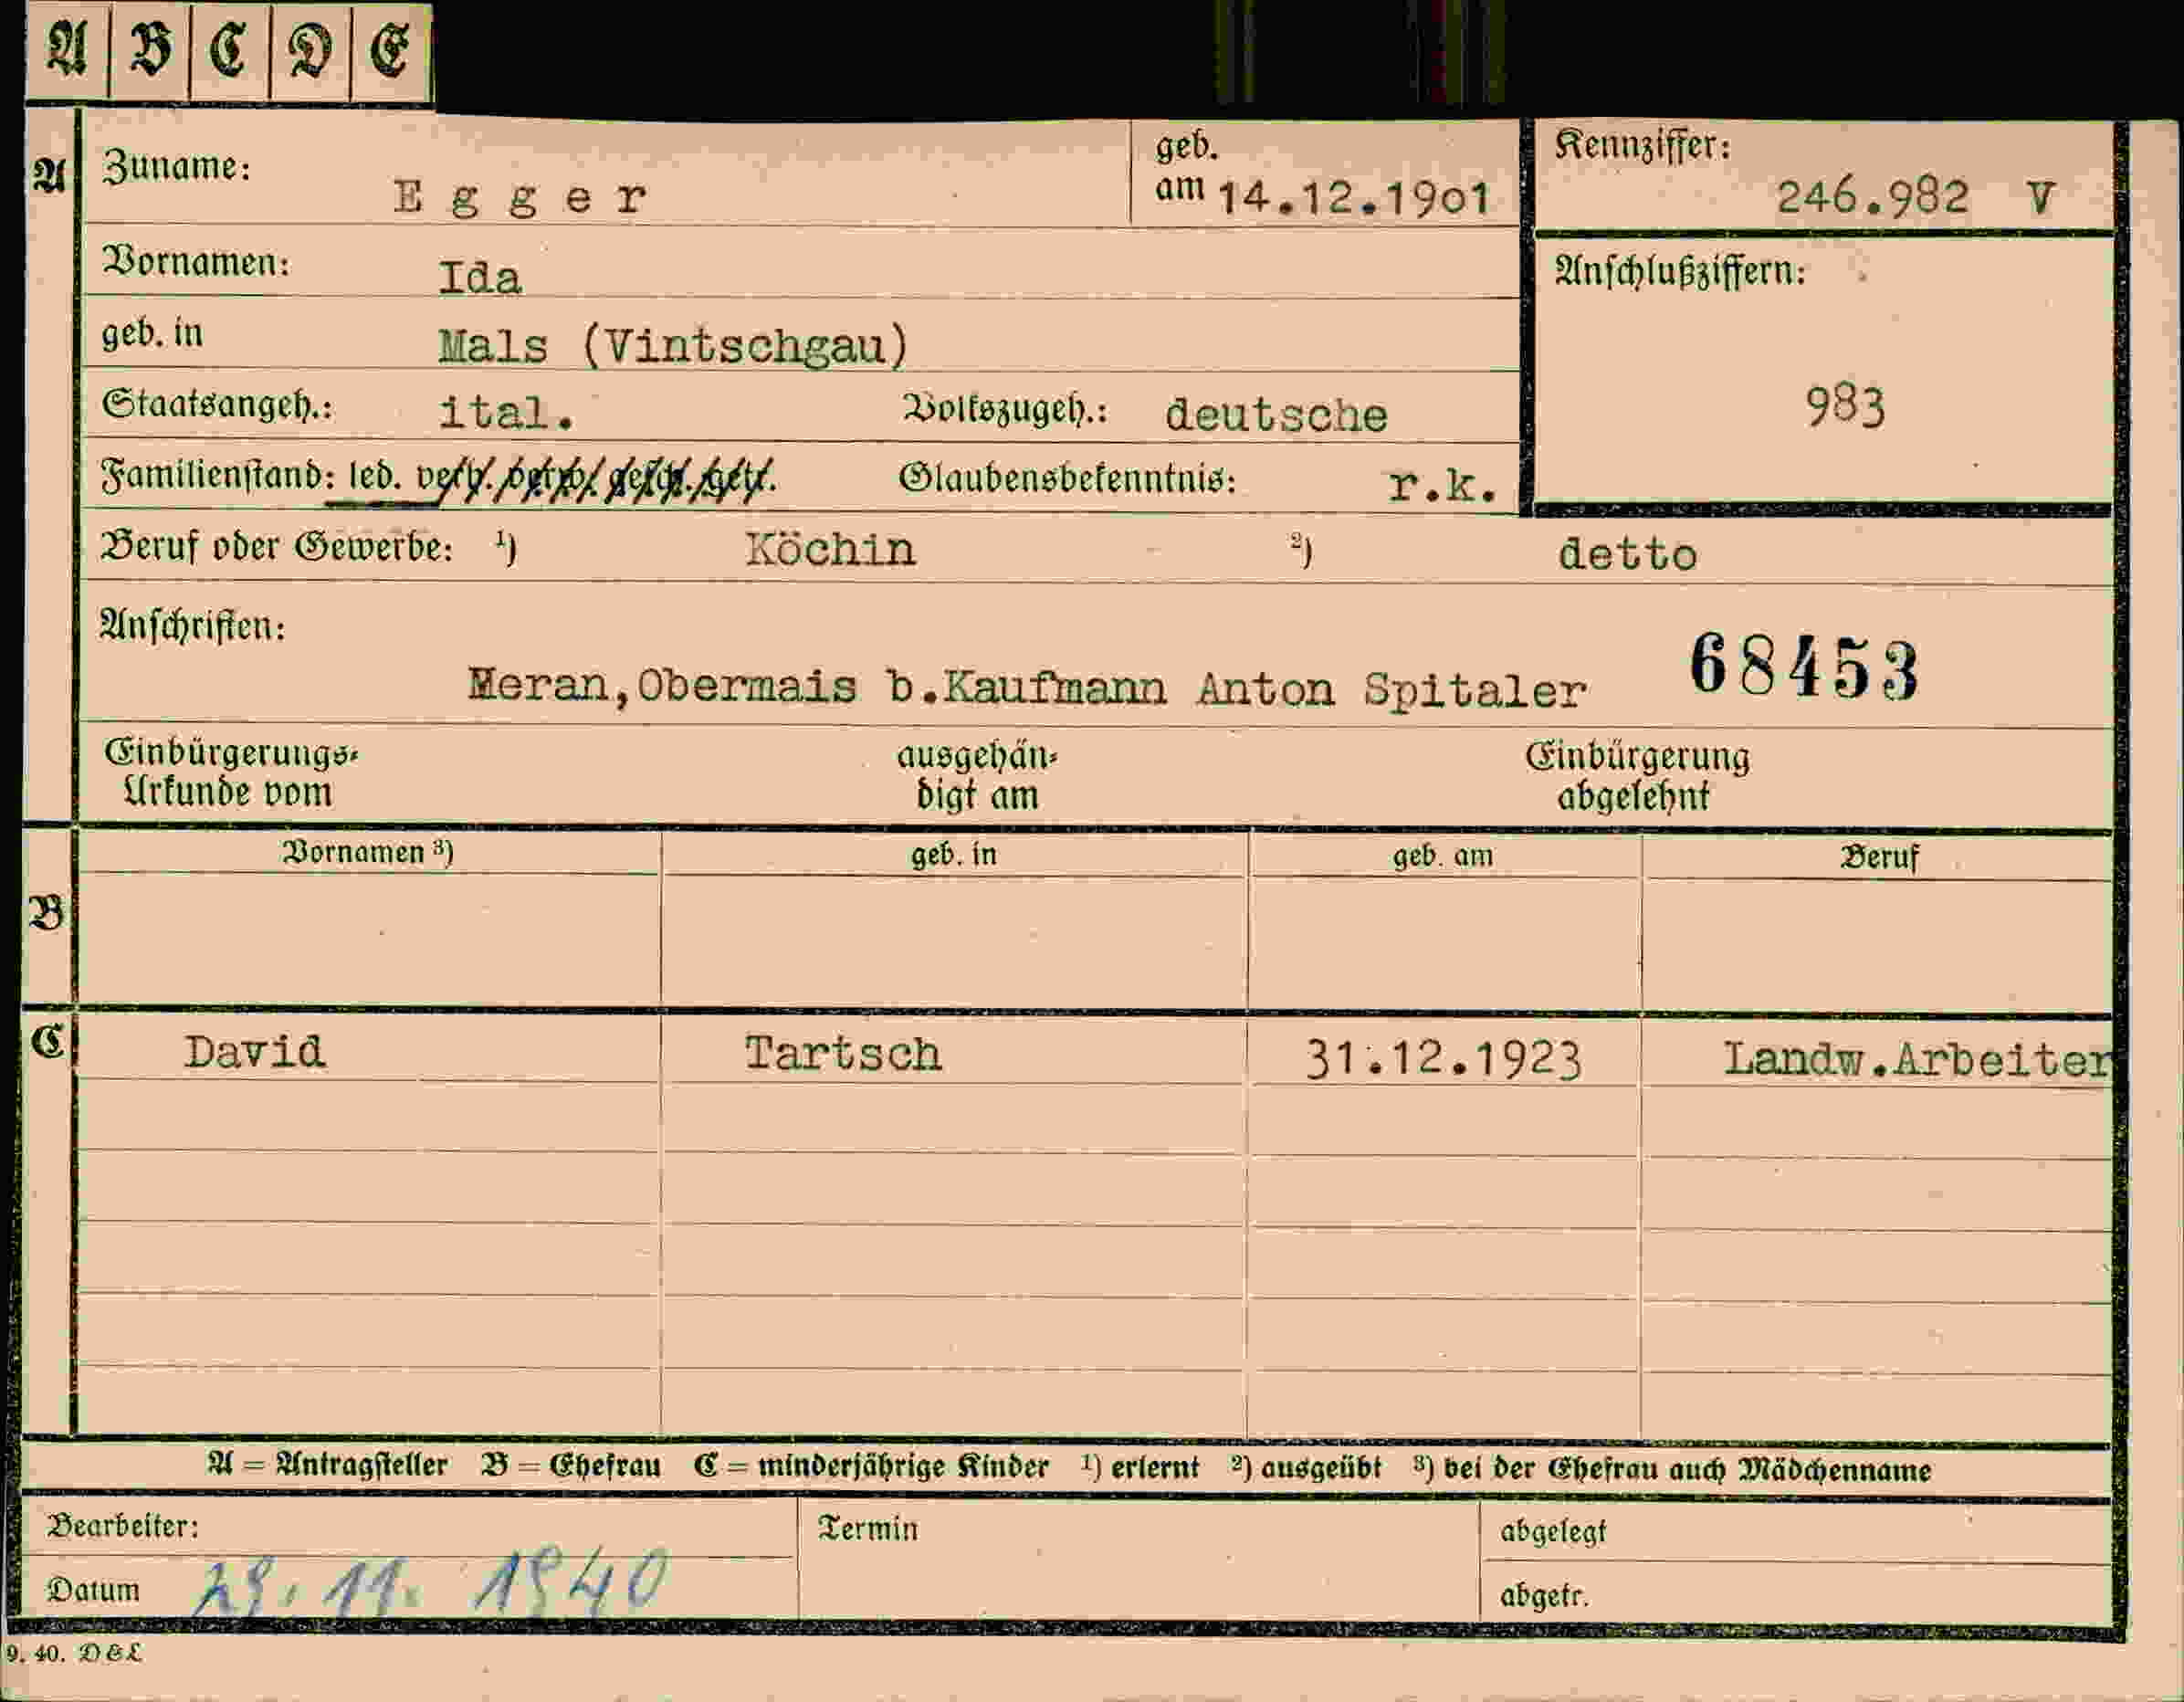 A B C D E
A Zuname: Egger geb. am 14.12.1901 Kennziffer: 246.982 V
Vornamen: Ida Anschlußziffern:
geb. in Mals (Vintschgau)
Staatsangeh.: ital. Volkszugeh.: deutsche 983
Familienstand: led. verh. verw. gesch. getr. Glaubensbekenntnis: r.k.
Beruf oder Gewerbe: ¹) Köchin ²) detto
Anschriften: 68453
Meran,Obermais b.Kaufmann Anton Spitaler
Einbürgerungs- ausgehän- Einbürgerung
Urkunde vom digt am abgelehnt
Vornamen ³) geb. in geb. am Beruf
B
C David Tartsch 31.12.1923 Landw.Arbeiter
A = Antragsteller B = Ehefrau C = minderjährige Kinder ¹) erlernt ²) ausgeübt ³) bei der Ehefrau auch Mädchenname
Bearbeiter: Termin abgelegt
Datum 29. 11. 1940 abgetr.
9. 40. D & L